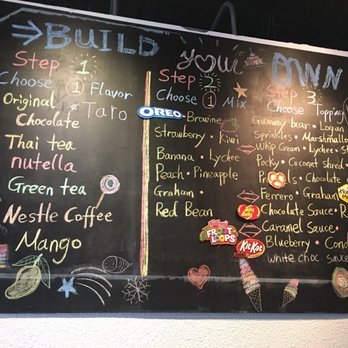 BUILD your OWN
Step 1
Choose 1 Flavor
Original
Taro
Chocolate
Thai tea
nutella
Green tea
Nestle Coffee
Mango
Step
Choose 1 Mix
OREO • Brownie
Strawberry • Kiwi
Banana • Lychee
Peach • Pineapple
Graham •
Red Bean
FROOT LOOPS
Step 3
Choose Topping
Gummy bear • Logan
Sprinkles • Marshmallo
Whip Cream • Lychee • St
Pocky • Coconut shred
• Chocolate
Ferrero • Graham
Chocolate Sauce •
Caramel Sauce •
KitKat
Blueberry • Cond
white choc sauce